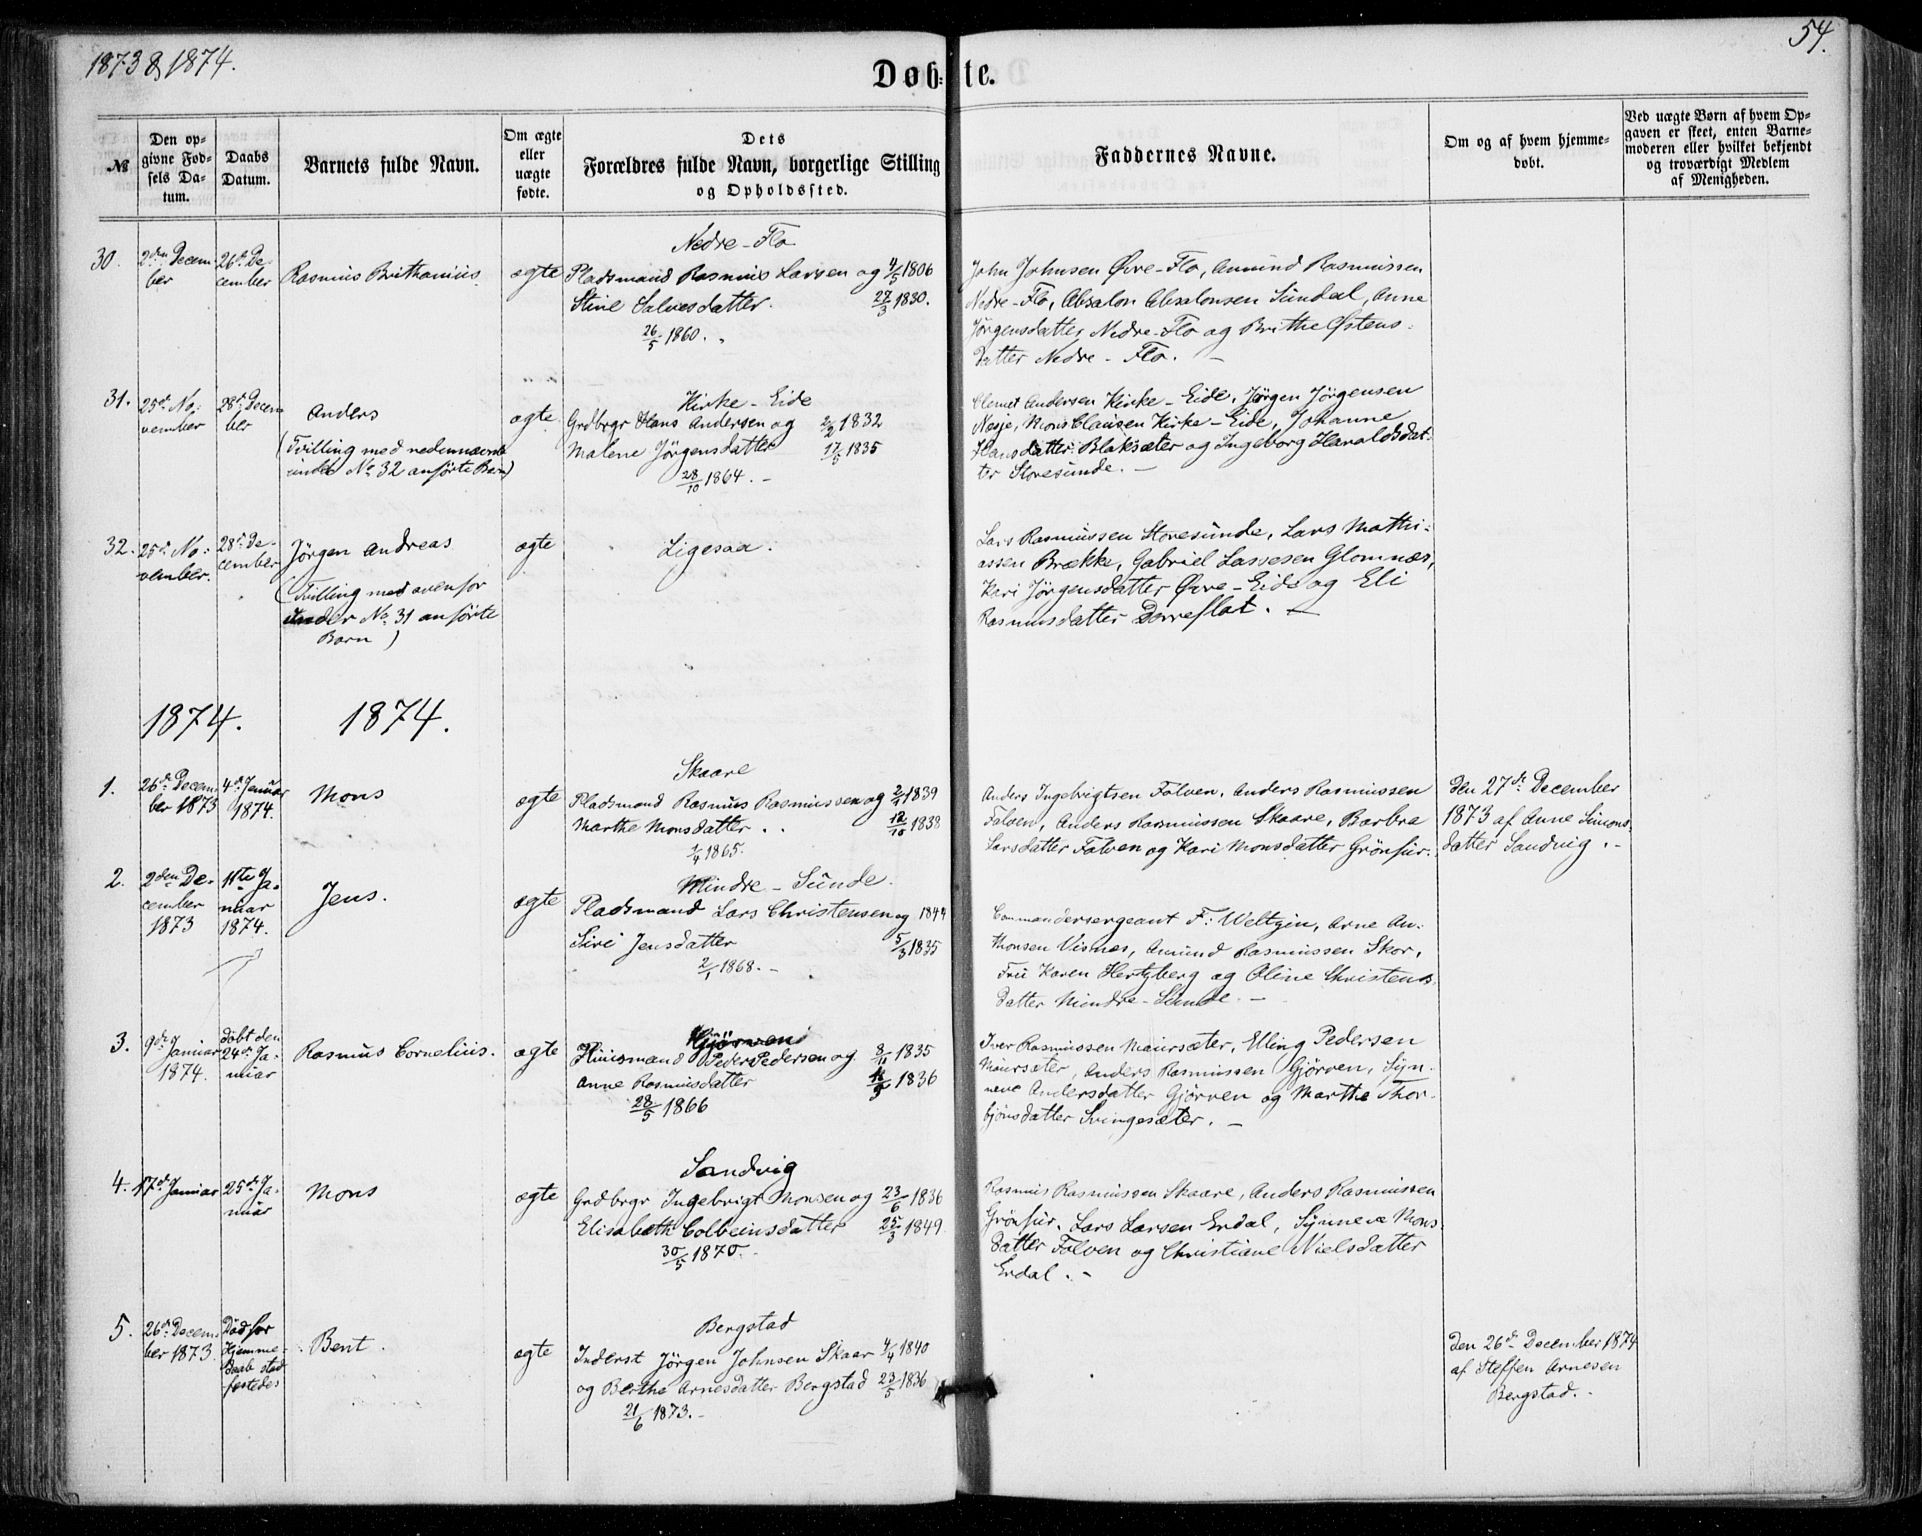 1873 & 1874.
54.
Døbte.
№
Den op-
givne Fød-
sels Da-
tum.
Daabs
Datum.
Barnets fulde Navn.
Om ægte
eller
uægte
fødte.
Dets
Forældres fulde Navn, borgerlige Stilling
og Opholdssted.
Faddernes Navne.
Om og af hvem hjemme-
døbt.
Ved uægte Børn af hvem Op-
gaven er skeet, enten Barne-
moderen eller hvilket bekjendt
og troværdigt Medlem
af Menigheden.
30.
2den Decem-
ber
26de De-
cember
Rasmus Brithanius.
ægte
Nedre-Flo
Pladsmand Rasmus Larsen og 4/5 1806
Stine Salvesdatter. 27/3 1830.
26/5 1860.
John Johnsen Øvre-Flo, Amund Rasmussen
Nedre-Flo, Absalon Absalonsen Sundal, Anne
Jørgensdatter Nedre-Flo og Brithe Østens-
datter Nedre-Flo. -
31.
25de No-
vember
28de Decem-
ber
Anders
(Tvilling med nedennævnte
under No. 32 anførte Barn)
ægte
Kirke-Eide
Grdbrgr Hans Andersen og 2/2 1832
Malene Jørgensdatter 17/5 1835
28/10 1864. -
Clemet Andersen Kirke-Eide, Jørgen Jørgensen
Nesje, Mons Clausen Kirke-Eide, Johanne
Hansdatter Blaksæter og Ingeborg Haraldsdat-
ter Storesunde. -
32.
25de No-
vember.
28de De-
cember
Jørgen Andreas
(Tvilling med ovenfor
under No. 31 anførte
Barn)
ægte
Ligesaa.
Lars Rasmussen Storesunde, Lars Mathi-
assen Brække, Gabriel Lassesen Glomnæs,
Kari Jørgensdatter Øvre-Eide og Eli
Rasmusdatter Dorreflot. -
1874.
1874.
1.
26de Decem-
ber 1873
4de Januar
1874.
Mons
ægte
Skaare
Pladsmand Rasmus Rasmussen og 2/1 1839
Marthe Monsdatter. 12/10 1838
1/4 1865.
Anders Ingebrigtsen Folven, Anders Rasmussen
Folven, Anders Rasmussen Skaare, Barbra
Larsdatter Folven og Kari Monsdatter Grönfur.
Den 27de December
1873 af Anne Simons-
datter Sandvig. -
2.
2den De-
cember
1873
11te Ja-
nuar
1874.
Jens.
ægte
Mindre-Sunde.
Pladsmand Lars Christensen og 1844
Siri Jensdatter 5/3 1835
2/1 1868. -
Commandersergeant F. Weltzin, Arne An-
thonsen Visnes, Amund Rasmussen Skor,
Fru Karen Hertzberg og Oline Christens-
datter Mindre-Sunde. -
3.
9de Januar
1874.
døbt den
24de Ja-
nuar
Rasmus Cornelius.
ægte
Gjörven
Huusmand Peder Pedersen og 8/11 1835
Anne Rasmusdatter 1836
28/5 1866
Iver Rasmussen Maursæter, Elling Pedersen
Maursæter, Anders Rasmussen Gjörven, Syn-
neve Andersdatter Gjörven og Marthe Thor-
bjönsdatter Svingesæter. -
4.
17de Januar
25de Ja-
nuar
Mons
ægte
Sandvig
Grdbrgr Ingebrigt Monsen og 23/6 1836
Elisabeth Colbeinsdatter 25/3 1849
30/5 1870.
Rasmus Rasmussen Skaare, Anders Rasmussen
Grönfur, Lars Larsen Erdal, Synneve Mons-
datter Folven og Christiane Nielsdatter
Erdal. -
5.
26de Decem-
ber 1873.
Död før
Hjemme-
daab stad-
fæstedes
Bent.
ægte
Bergstad
Inderst Jörgen Johnsen Skaar 4/4 1840
og Berthe Arnesdatter Bergstad 23/5 1836
21/6 1873. -
Den 26de December 1874
af Steffen Arnesen
Bergstad. -